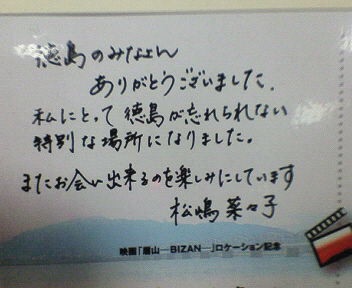 徳島のみなさん
ありがとうございました。
私にとって徳島が忘れられない
特別な場所になりました。
またお会い出来るのを楽しみにしています
松嶋菜々子
映画「眉山―BIZAN―」ロケーション記念